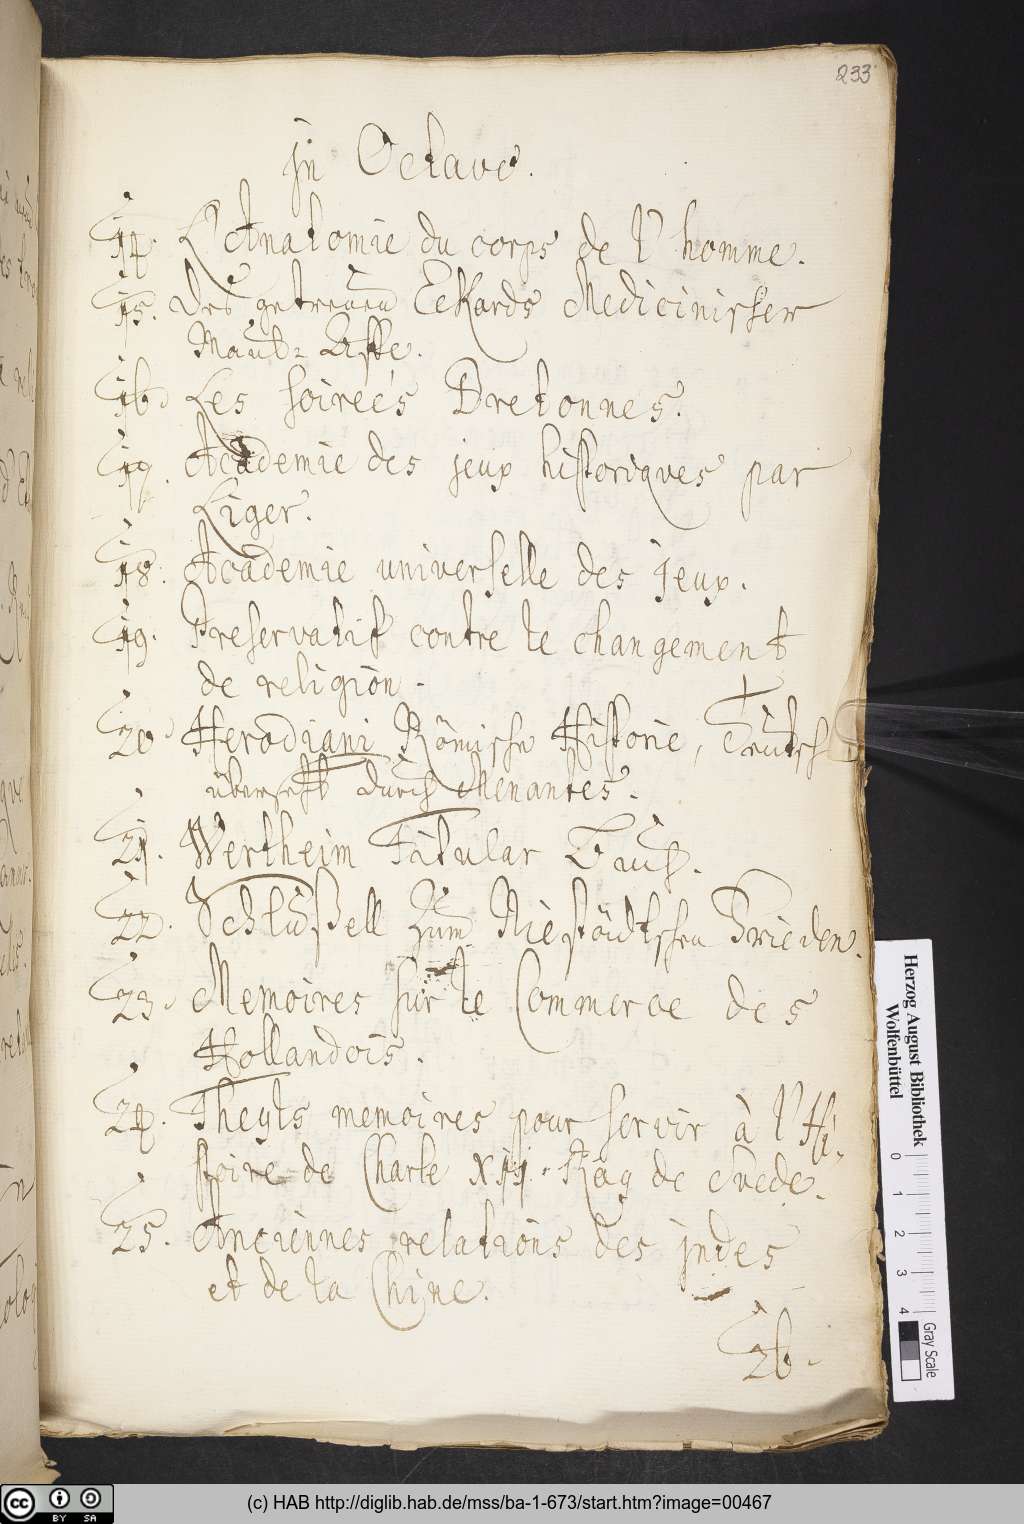 233
in Octavo.
14. L'Anatomie du corps de l'homme.
15. Des getreuen Eckards Medicinischer
Maul-Affe.
16. Les soireés Bretonnes.
17. Academie des jeux historiques par
Liger.
18. Academie universelle des jeux.
19. Preservatif contre le changement
de religion.
20. Herodiani Römische Historie, Teutsch
übersetzt durch Menantes.
21. Wertheim Titular Buch.
22. Schlüßell zum Niestädtschen Frieden.
23. Memoires sur le Commerce des
Hollandois.
24. Theyls memoires pour servir à l'Hi-
stoire de Charle XII. Roy de Svede.
25. Anciennes relations des jndes
et de la Chine.
26.
Herzog August Bibliothek
Wolfenbüttel
0 1 2 3 4
Gray Scale
(c) HAB http://diglib.hab.de/mss/ba-1-673/start.htm?image=00467
cc BY SA